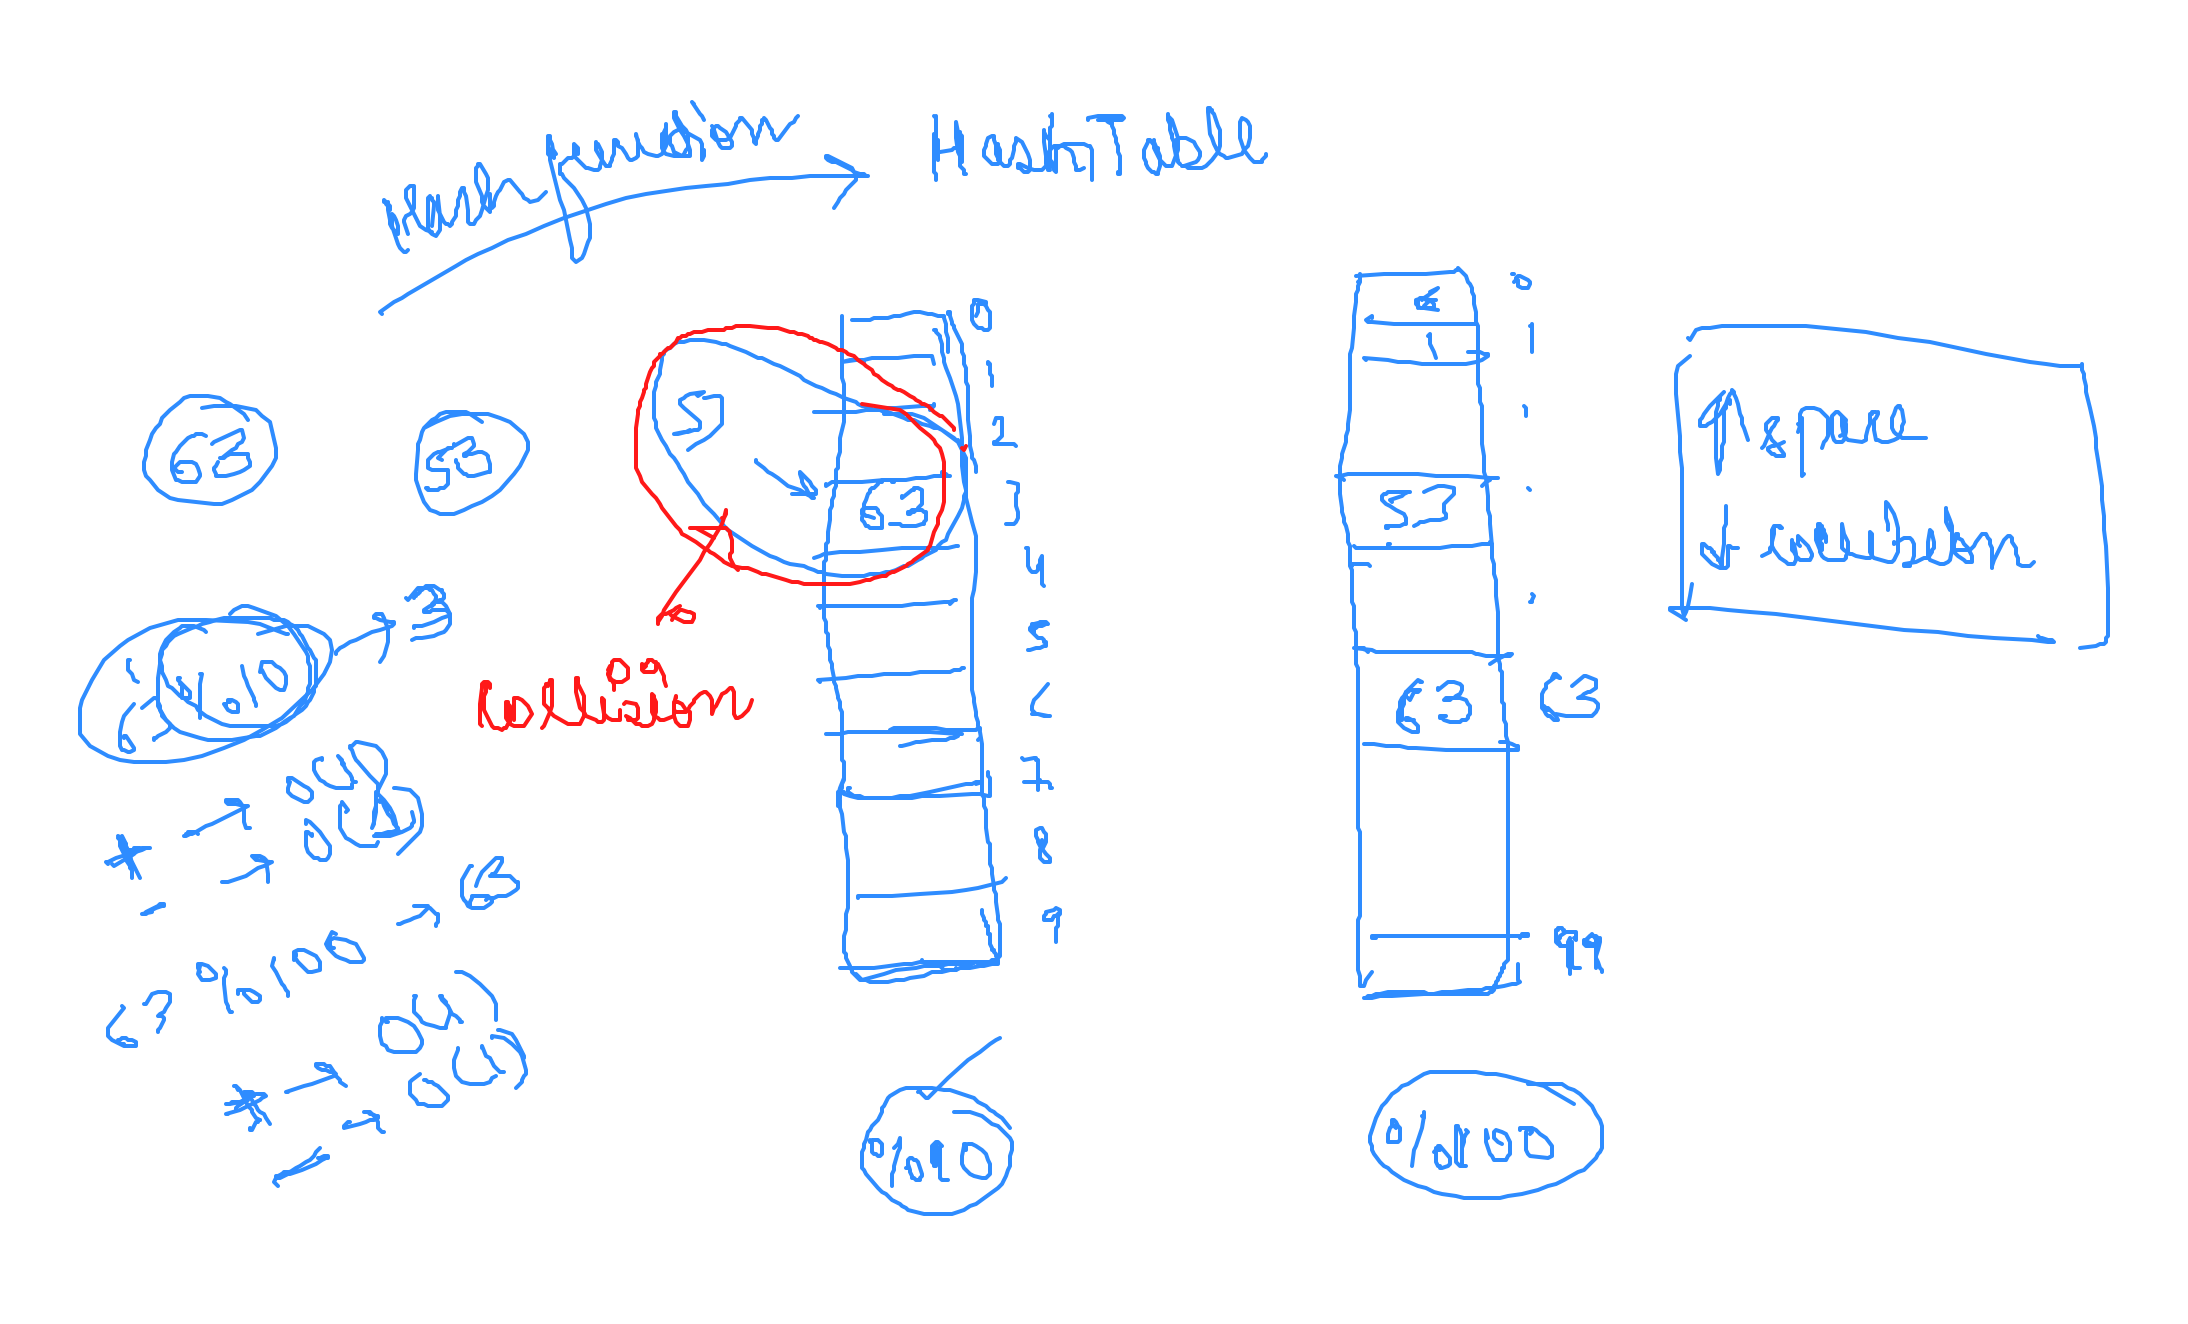 Hash function
HashTable
63
53
%10
3
+ → O(1)
- → O(1)
63 % 100 → 63
* → O(1)
- → O(1)
collision
63
0
1
2
3
4
5
6
7
8
9
%10
0
1
53
63
63
99
%100
↑ space
↓ collision